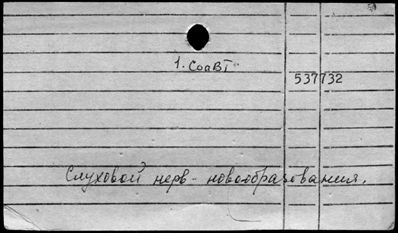 1. СоавТ
537732
Слуховой нерв - новообразования.